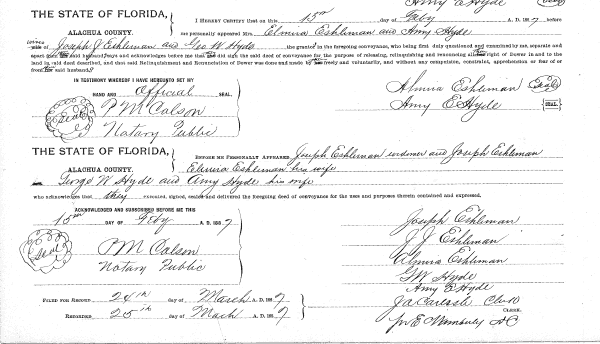 Amy E Hyde
THE STATE OF FLORIDA,
ALACHUA COUNTY.
I HEREBY CERTIFY that on this 15th day of Feby A. D. 1887, before
me personally appeared Mrs. Elmira Eshleman and Amy Hyde
wives
wife of Joseph J Eshleman and Geo W Hyde the grantor in the foregoing conveyance, who being first duly questioned and examined by me, separate and
apart from said husband and acknowledges before me that did sign the said deed of conveyance for the purpose of releasing, relinquishing and renouncing all right of Dower in and to the
land in said deed described, and that said Relinquishment and Renunciation of Dower was done and made by freely and voluntarily, and without any compulsion, constraint, apprehension or fear of or
from said husband s
IN TESTIMONY WHEREOF I HAVE HEREUNTO SET MY
HAND AND Official SEAL.
Seal
P M Colson
Notary Public
Almira Eshleman Seal
Amy E Hyde SEAL.
THE STATE OF FLORIDA,
ALACHUA COUNTY.
BEFORE ME PERSONALLY APPEARED Joseph Eshleman widower and Joseph Eshleman
Elmira Eshleman his wife
George W Hyde and Amy Hyde his wife
who acknowledges that they executed, signed, sealed and delivered the foregoing deed of conveyance for the uses and purposes therein contained and expressed.
ACKNOWLEDGED AND SUBSCRIBED BEFORE ME THIS
15th DAY OF Feby A. D. 1887
Seal
P M Colson
Notary Public
Joseph Eshleman
J J Eshleman
Almira Eshleman
G W Hyde
Amy E Hyde
FILED FOR RECORD 24th day of March A. D. 1887
RECORDED 25th day of Mach A. D. 1887
J A Carlisle Clerk
CLERK.
pr E Wamberly DC